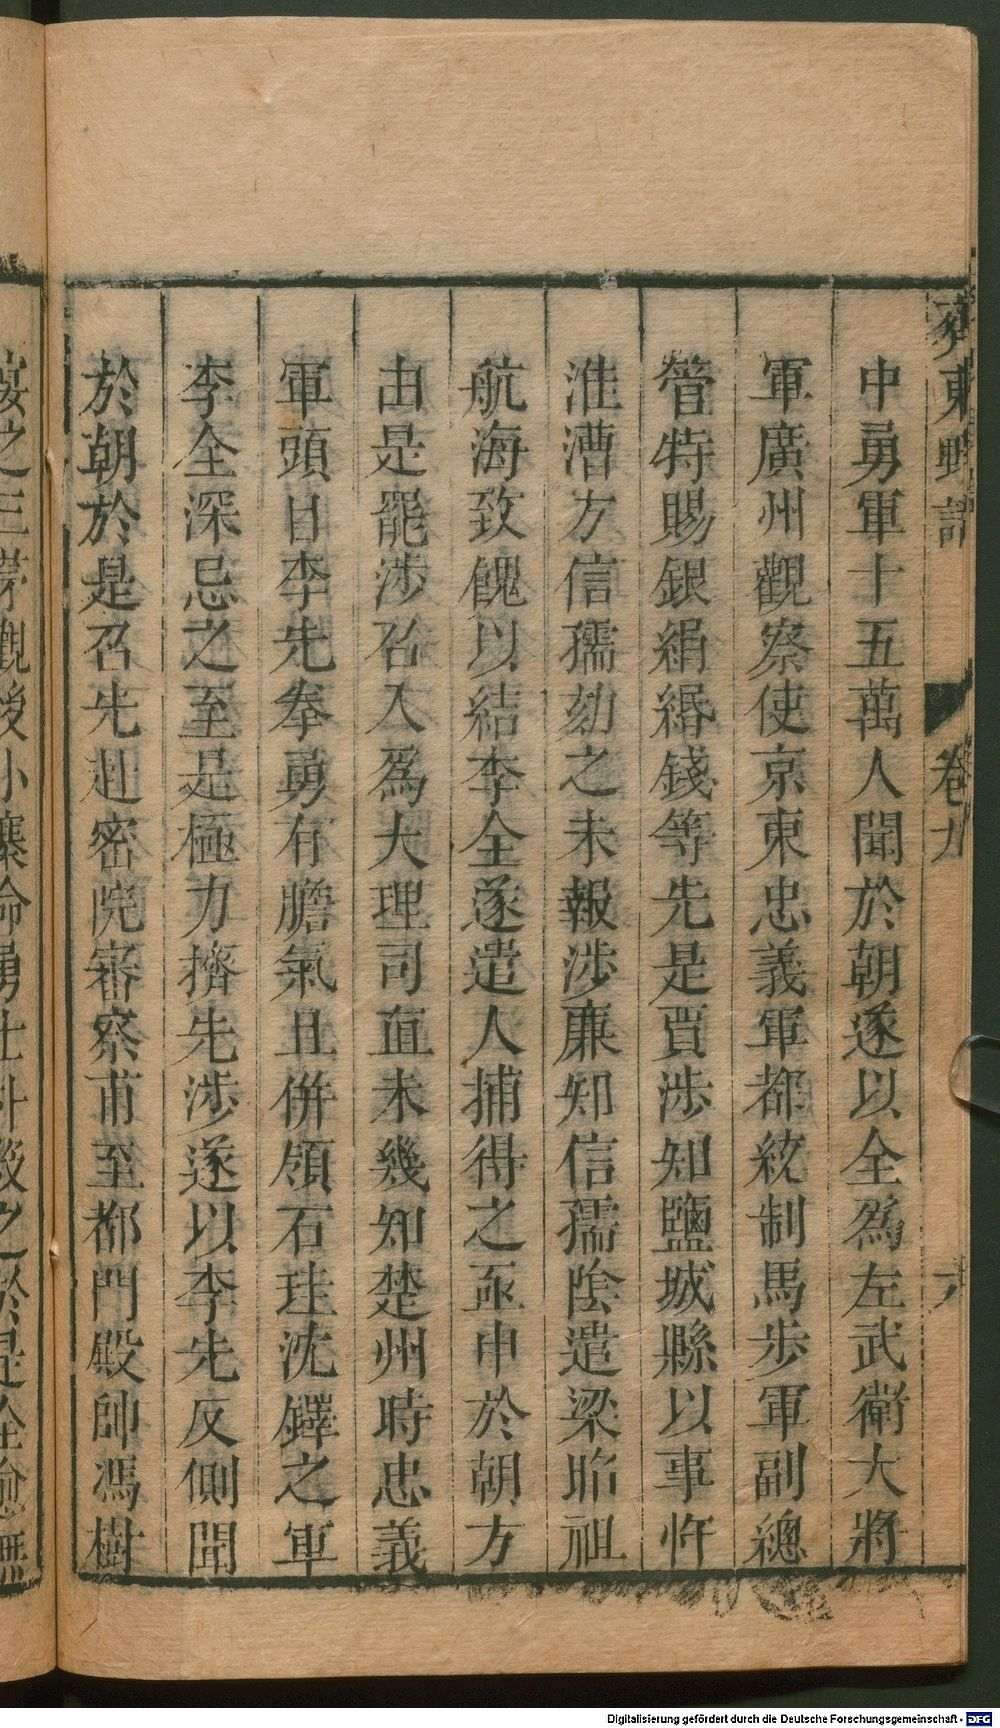 齊東野語
卷九
中勇軍十五萬人聞於朝遂以全爲左武衛大將
軍廣州觀察使京東忠義軍都統制馬步軍副總
管特賜銀絹緡錢等先是賈涉知鹽城縣以事忤
淮漕方信孺劾之未報涉廉知信孺陰遣梁昭祖
航海致餽以結李全遂遣人捕得之亟申於朝方
由是罷涉召入爲大理司直未幾知楚州時忠義
軍頭目李先拳勇有膽氣且併領石珪沈鐸之軍
李全深忌之至是極力擠先涉遂以李先反側聞
於朝於是召先赴密院審察甫至都門殿帥馮樹
Digitalisierung gefördert durch die Deutsche Forschungsgemeinschaft - DFG